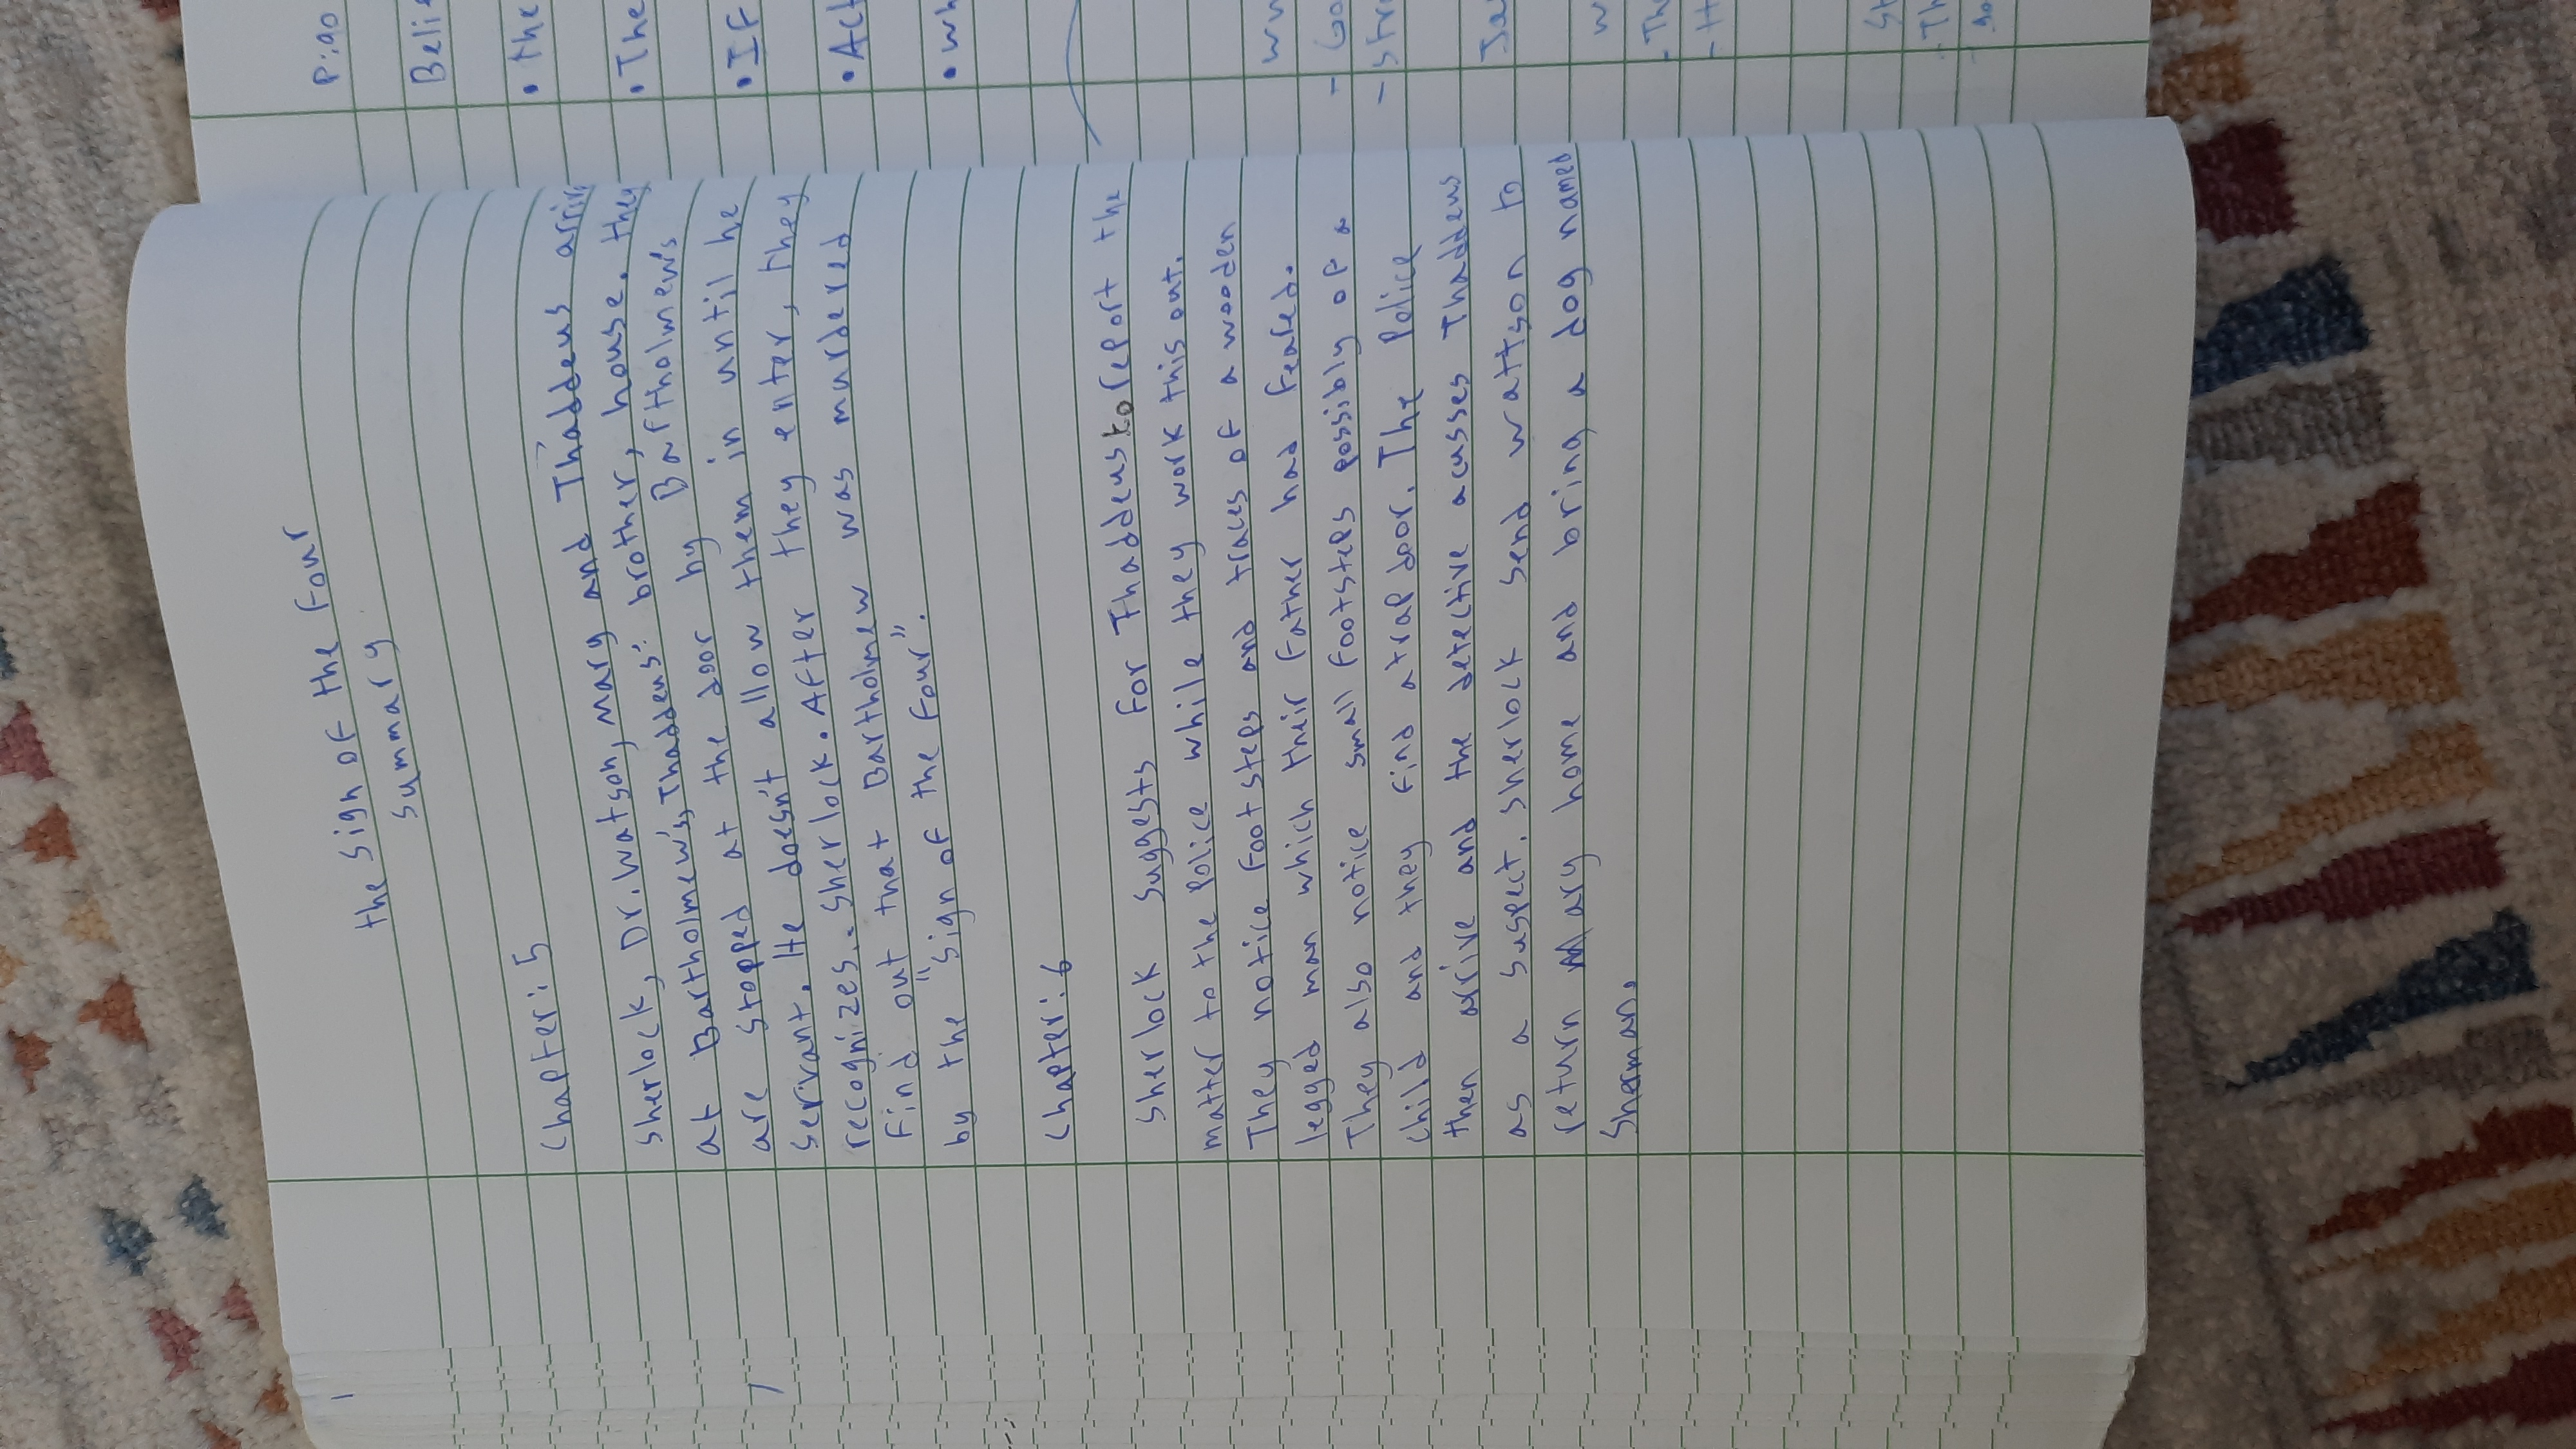 the Sign of the Four
Summary
Chapter: 5
Sherlock, Dr. Watson, Mary and Thaddeus arrive
at Bartholmew's, Thaddeus' brother, house. they
are stopped at the door by Bartholmew's
servant. He doesn't allow them in until he
recognizes.. Sherlock. After they enter, they
find out that Bartholmew was murdered
by the "Sign of the Four".
Chapter: 6
Sherlock suggests for Thaddeus to report the
matter to the Police while they work this out.
They notice footsteps and traces of a wooden
legged man which their father had feared.
They also notice small footsteps possibly of a
child and they find a trap door. The Police
then arrive and the detective acusses Thaddeus
as a suspect. Sherlock send wattson to
return Mary home and bring a dog named
Sherman.
P:90
Beli
• the
• The
• If
• Act
• wh
- Go
- Str
Ja
w
- Th
- H
St
- Th
go